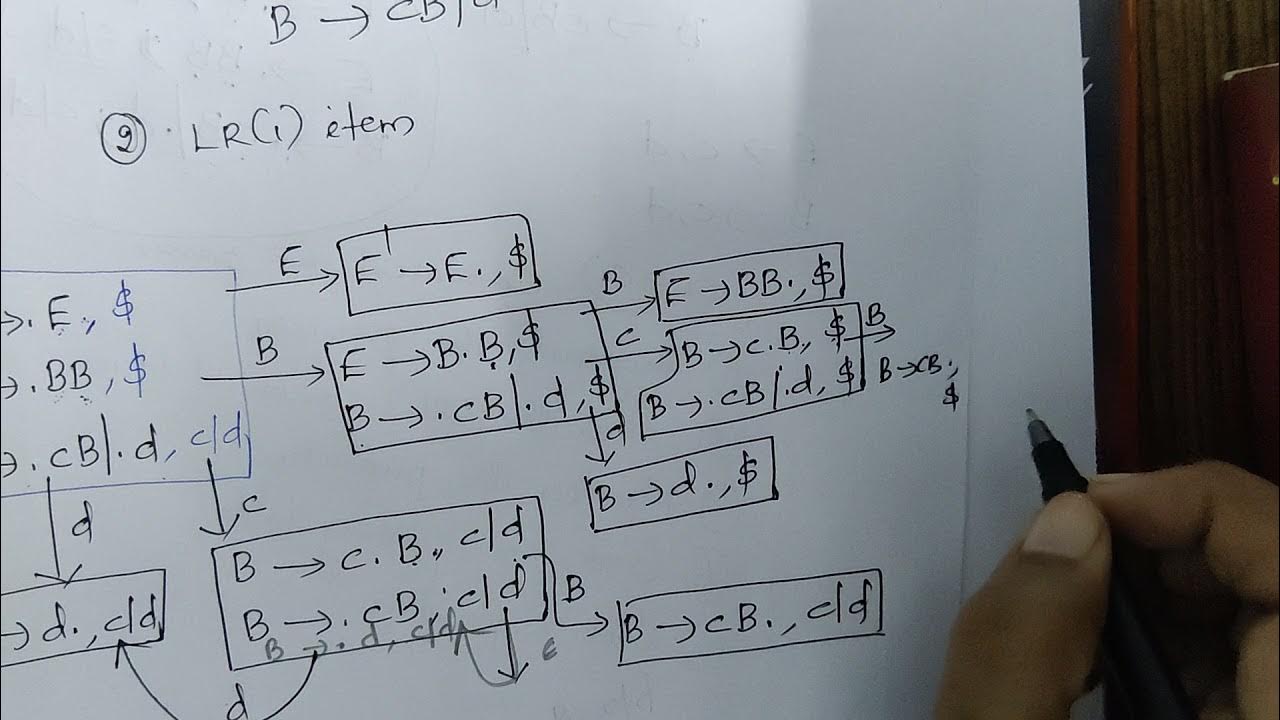 B → cB|d
② LR(1) item
E
E' → E., $
B
E → BB., $
→. E, $
→. BB, $
→. cB|.d, c|d
B
E → B.B, $
B → .cB|.d, $
c
B → c.B, $
B → .cB|.d, $
B
B → cB.,
$
d
B → d., $
d
c
→ d., c|d
B → c.B, c|d
B → .cB, c|d
B → .d, c|d
B
B → cB., c|d
c
d